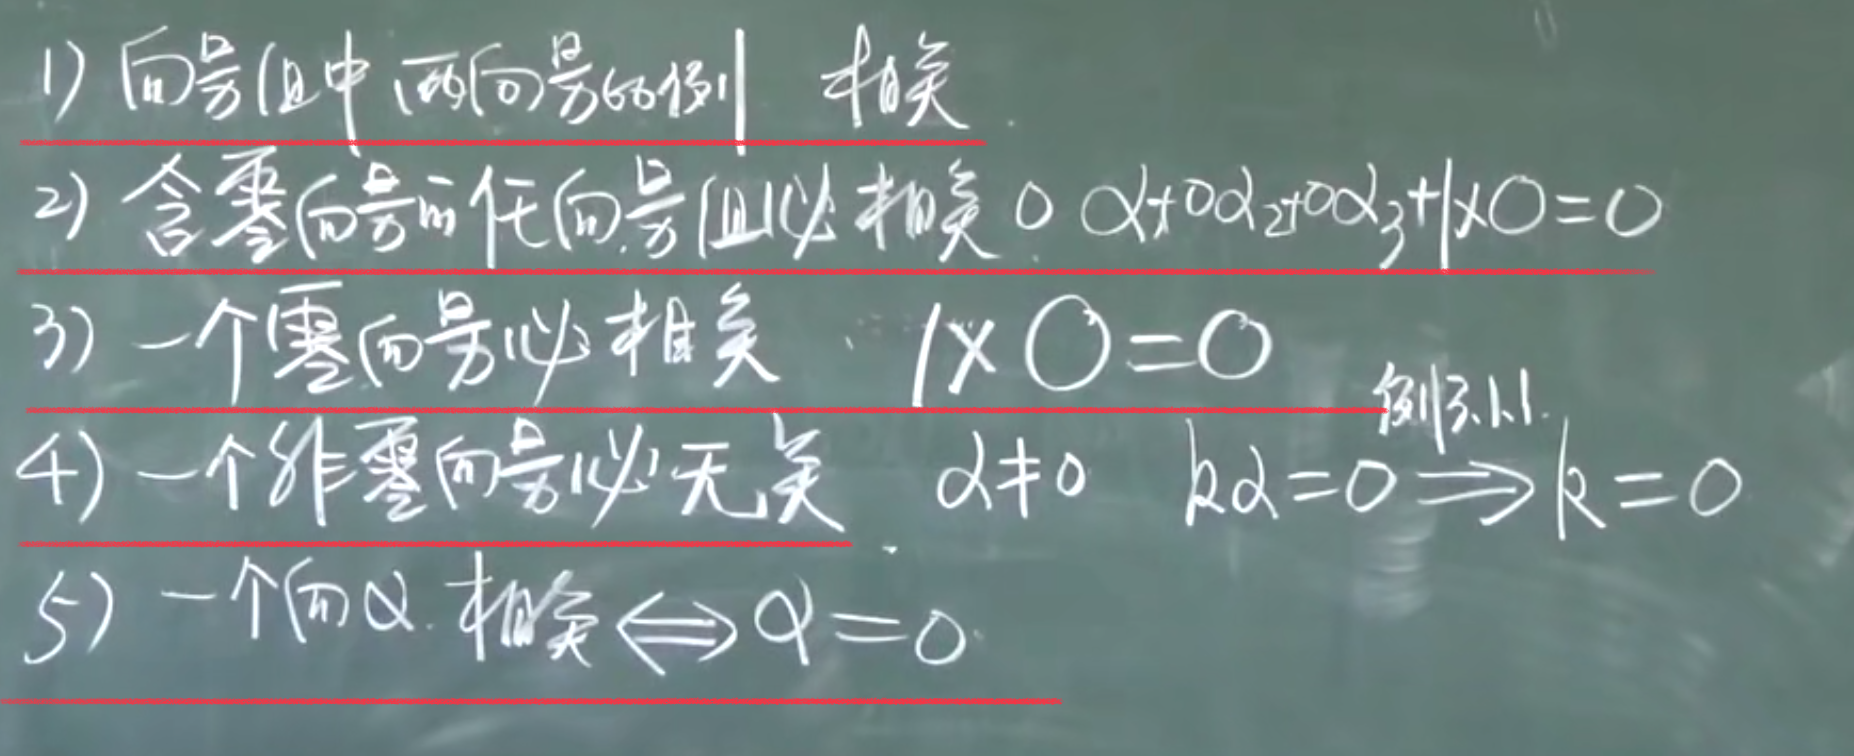 1) 向量组中两向量成比例 相关
2) 含零向量的任向量组必相关 0α₁+0α₂+0α₃+1×0=0
3) 一个零向量必相关 1×0=0
例3.1.1.
4) 一个非零向量必无关 α≠0 kα=0 ⟹ k=0
5) 一个向α.相关⟺α=0